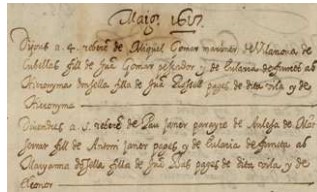 Maig 1617
Dijous a 4 rebere de Miquel Gomar mariner de Vilanova de
Cubelles fill de Jua Gomar pescador y de Eularia defuncts ab
Hieronyma donsella filla de Jua Rossell pages de dita vila y de
Hieronyma
Divendres a 5 rebere de Pau Janer parayre de Aulesa de Mon
serrat fill de Antoni Janer pages y de Eularia defuncta ab
Maryanna dosella filla de Jua Mas pages de dita vila y de
Eleonor